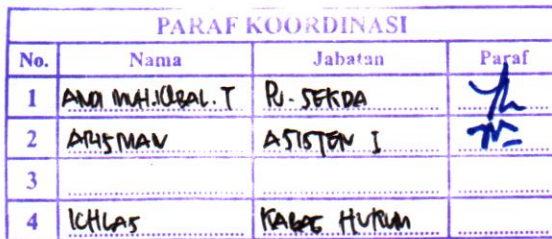 PARAF KOORDINASI
No. Nama Jabatan Paraf
1 ANDI MUH.IQBAL.T Pj. SEKDA
2 ARISMAN ASISTEN I
3
4 ICHLAS KABAG HUKUM